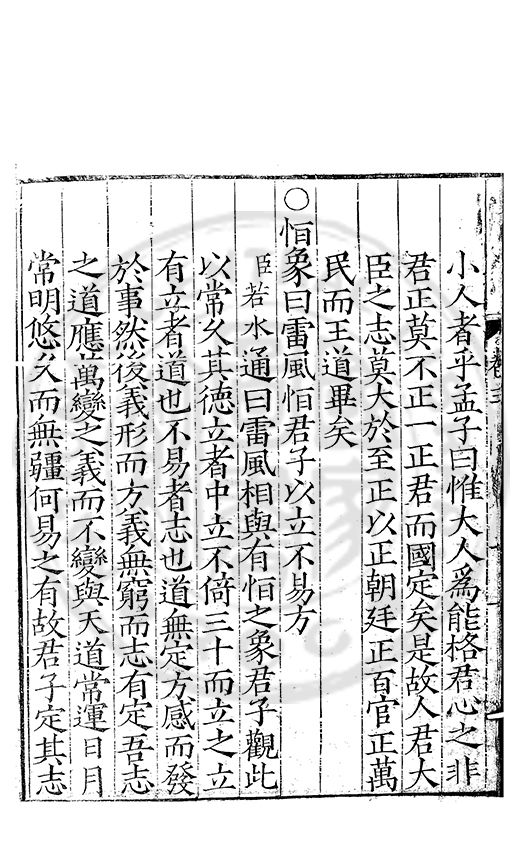 卷三
小人者乎孟子曰惟大人爲能格君心之非
君正莫不正一正君而國定矣是故人君大
臣之志莫大於至正以正朝廷正百官正萬
民而王道畢矣
○恒象曰雷風恒君子以立不易方
臣若水通曰雷風相與有恒之象君子觀此
以常久其德立者中立不倚三十而立之立
有立者道也不易者志也道無定方感而發
於事然後義形而方義無窮而志有定吾志
之道應萬變之義而不變與天道常運日月
常明悠久而無疆何易之有故君子定其志